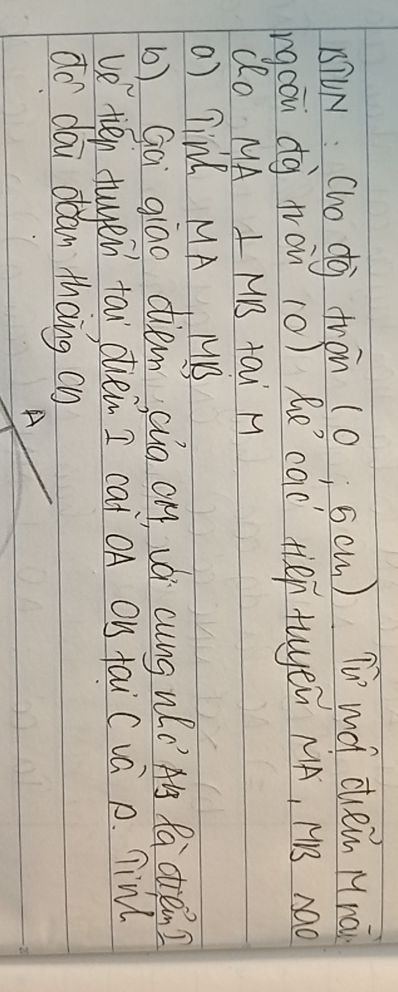 BTVN : Cho đg tròn (O ; 6cm). Từ một điểm M nằm
ngoài đg tròn (O) kẻ các tiếp tuyến MA, MB sao
cho MA ⊥ MB tại M
a) Tính MA MB
b) Gọi giao điểm của OM với cung nhỏ AB là điểm I
Vẽ tiếp tuyến tại điểm I cắt OA OB tại C và D. Tính
độ dài đoạn thẳng CD
A